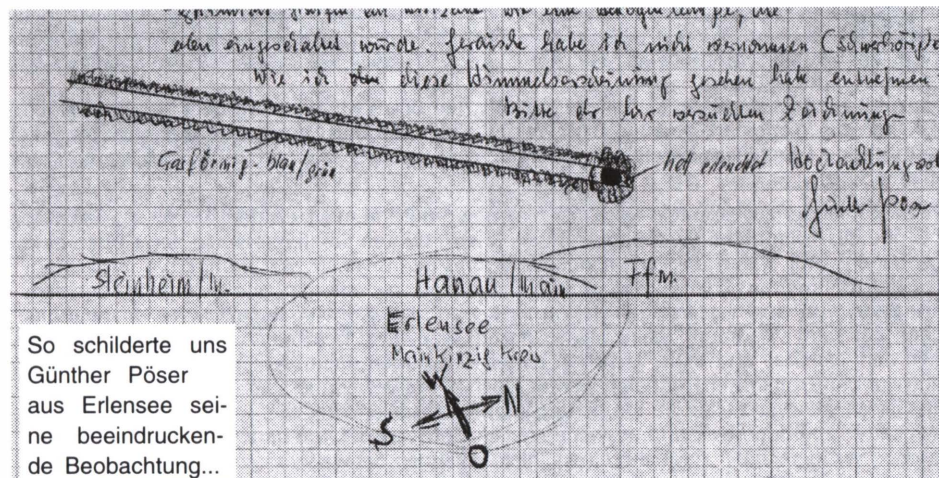 wie eine
eben eingeschaltet wurde. Geräusche habe ich nicht vernommen (Schwerhörig
Wie ich diese Himmelserscheinung gesehen habe entnehmen
Bitte der hier versuchten Zeichnung
Gasförmig - blau/grün
hell erleuchtet
Hochachtungsvoll
Steinheim/M.
Hanau/Main
Ffm.
Erlensee
Mainkinzig Kreis
W
N
S
O
So schilderte uns
Günther Pöser
aus Erlensee sei-
ne beeindrucken-
de Beobachtung...